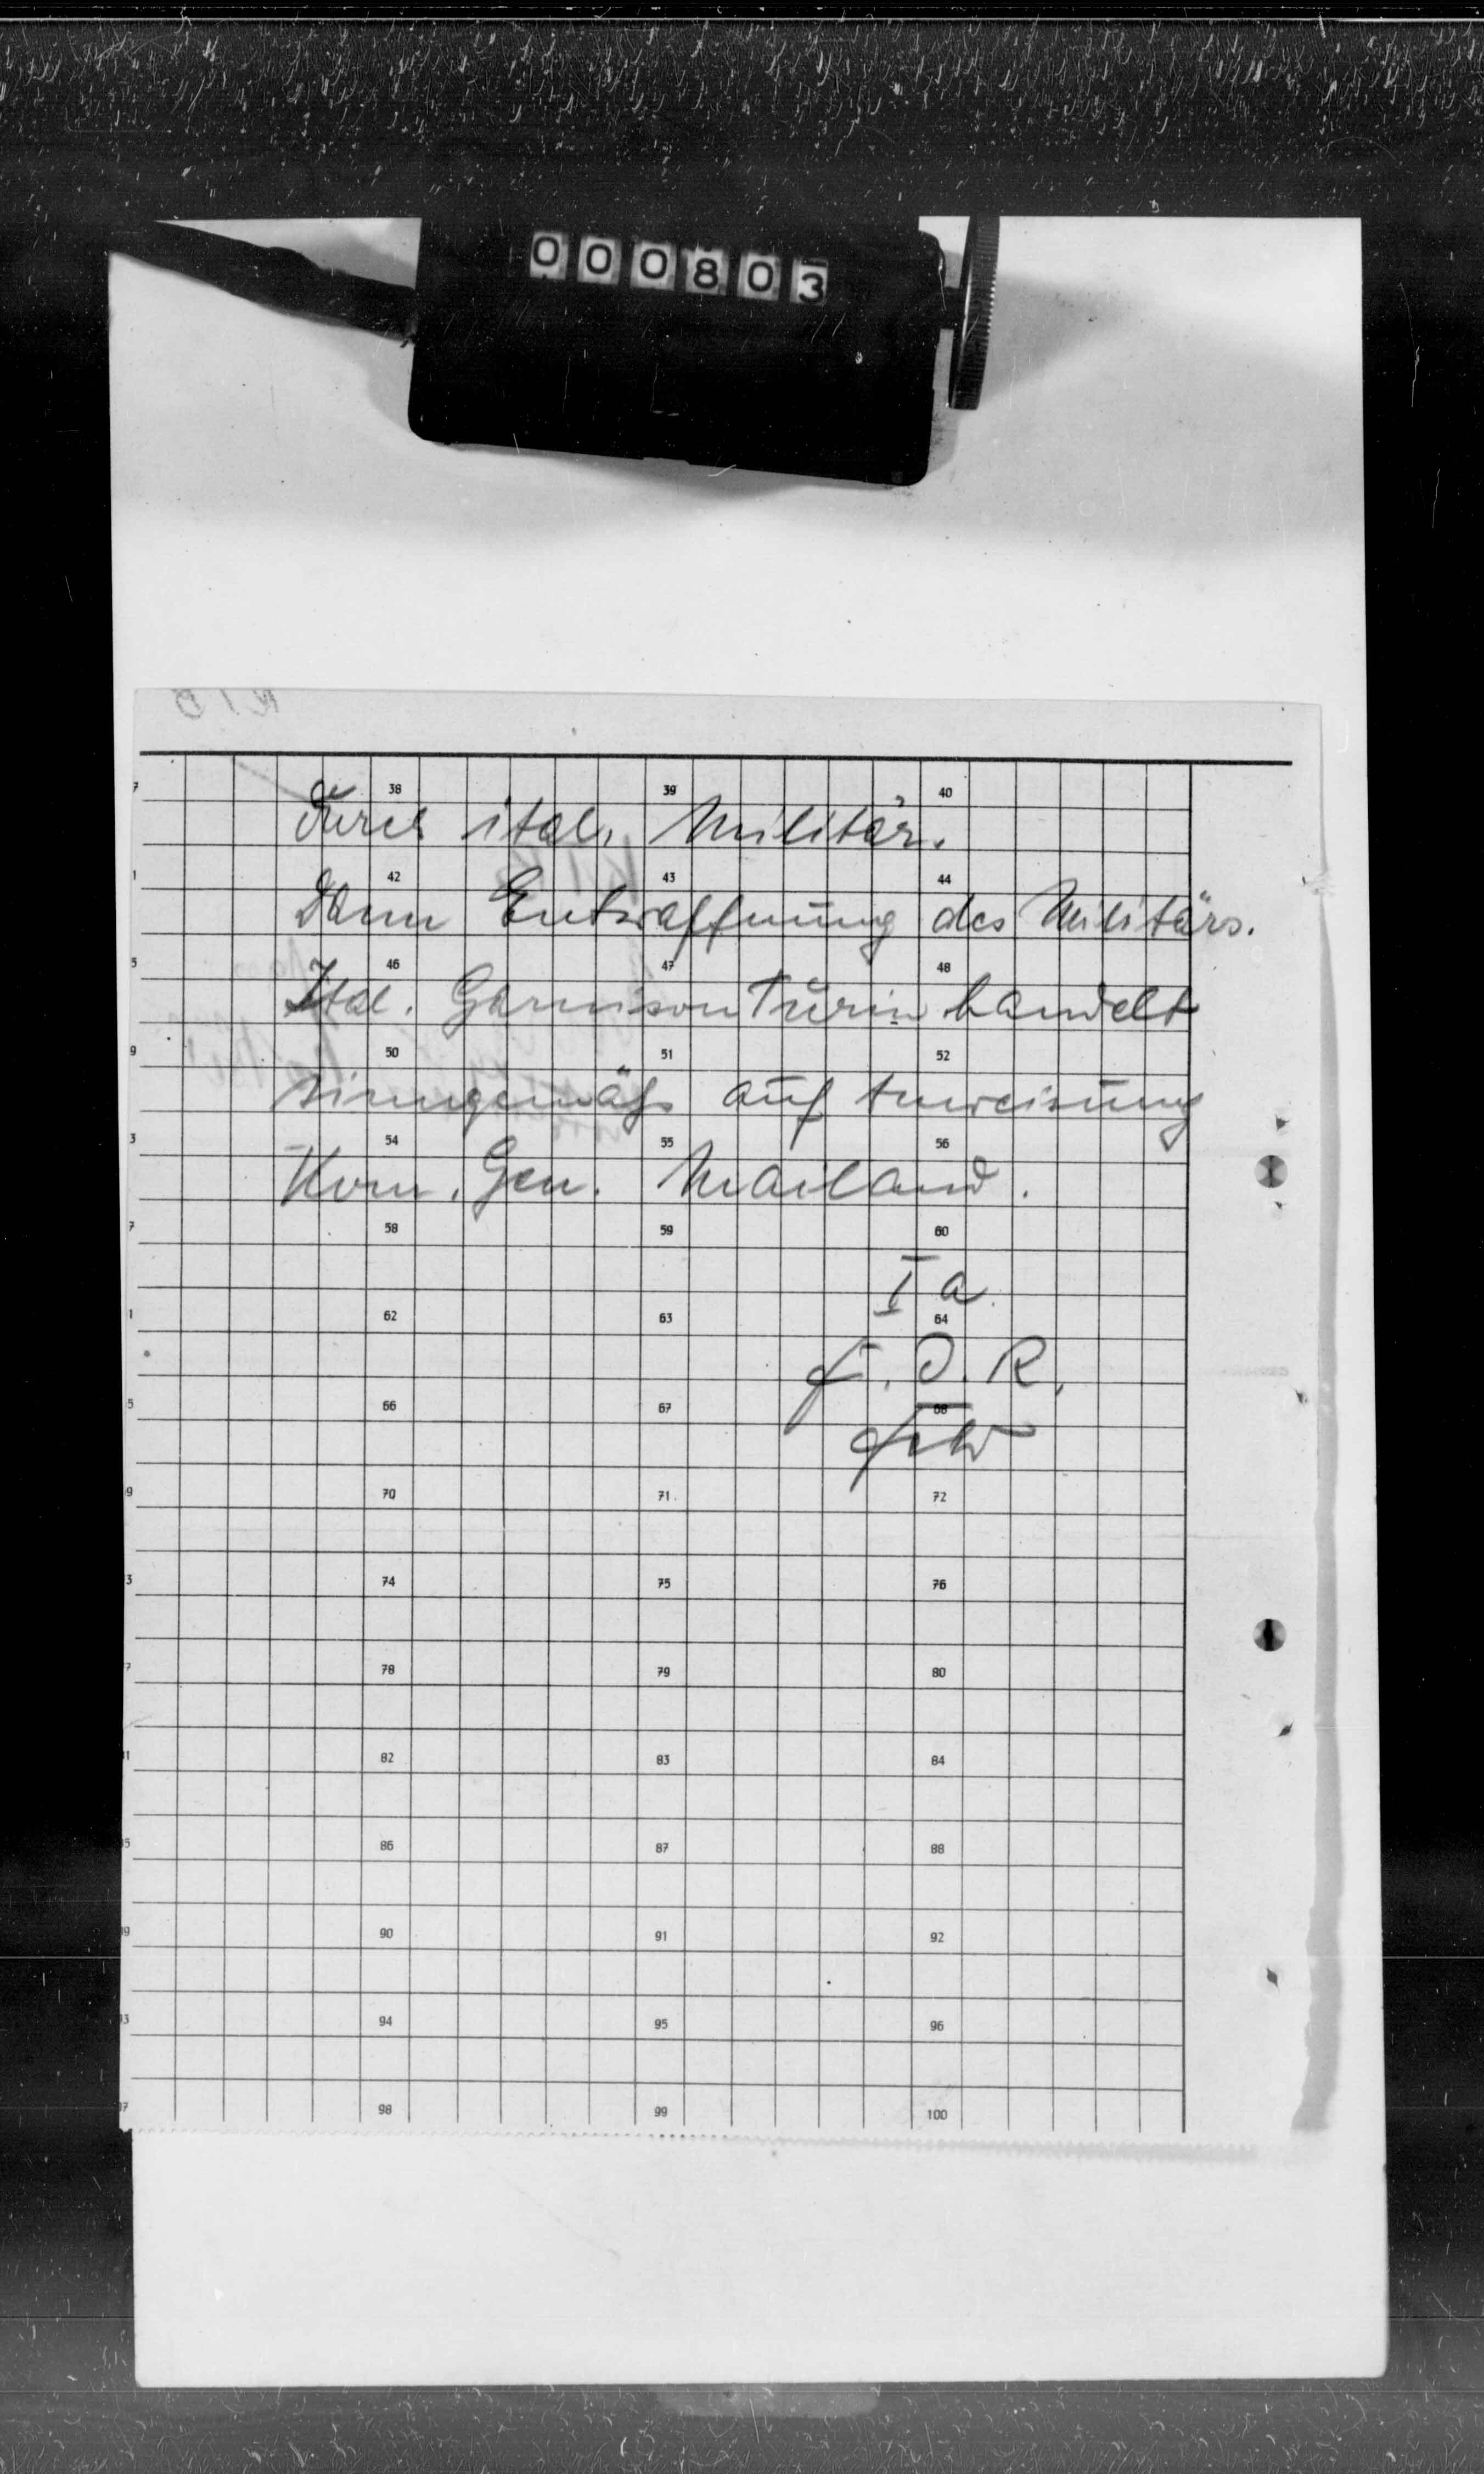 000803
38 39 40
durch ital. Militär.
42 43 44
Dann Entwaffnung des Militärs.
46 47 48
Ital. Garnison Turin handelt
50 51 52
sinngemäß auf Anweisung
54 55 56
Kom. Gen. Mailand.
58 59 60
Ia
62 63 64
F. d. R.
66 67 68
70 71 72
74 75 76
78 79 80
82 83 84
86 87 88
90 91 92
94 95 96
98 99 100